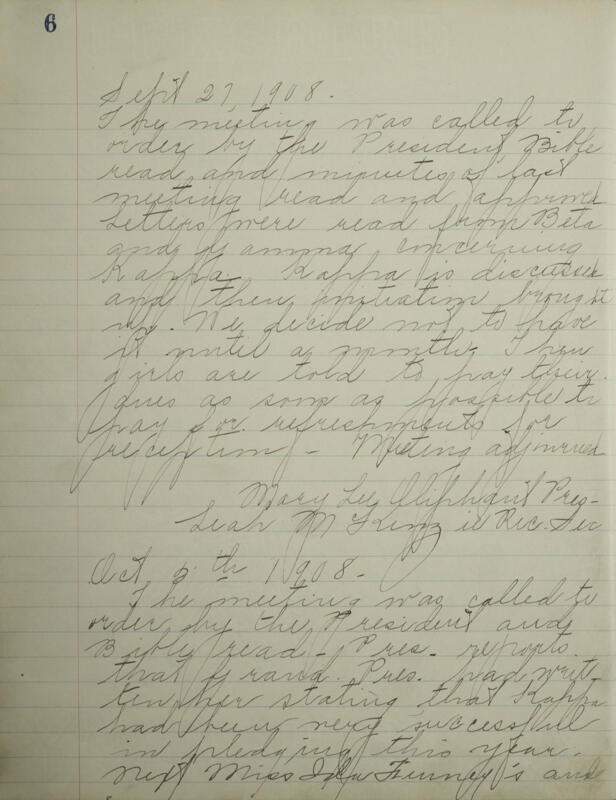 6
Sept 27 1908.
The meeting was called to
order by the President Bible
read and minutes of last
meeting read and approved
Letters were read from Beta
and Gamma concerning
Kappa. Kappa is discussed
and then initiation brought
up. We decide not to have
it until a month. Then
girls are told to pay their
dues as soon as possible to
pay for refreshments for
reception - Meeting adjourned
Mary Lee Oliphant Pres-
Leah Rec. Sec
Oct th 1908-
The meeting was called to
order by the President and
Bible read - Pres. reports
that Grand Pres. had writ-
ten her stating that Kappa
had been very successful
in pledging this year.
Next Miss Ida Finney's and